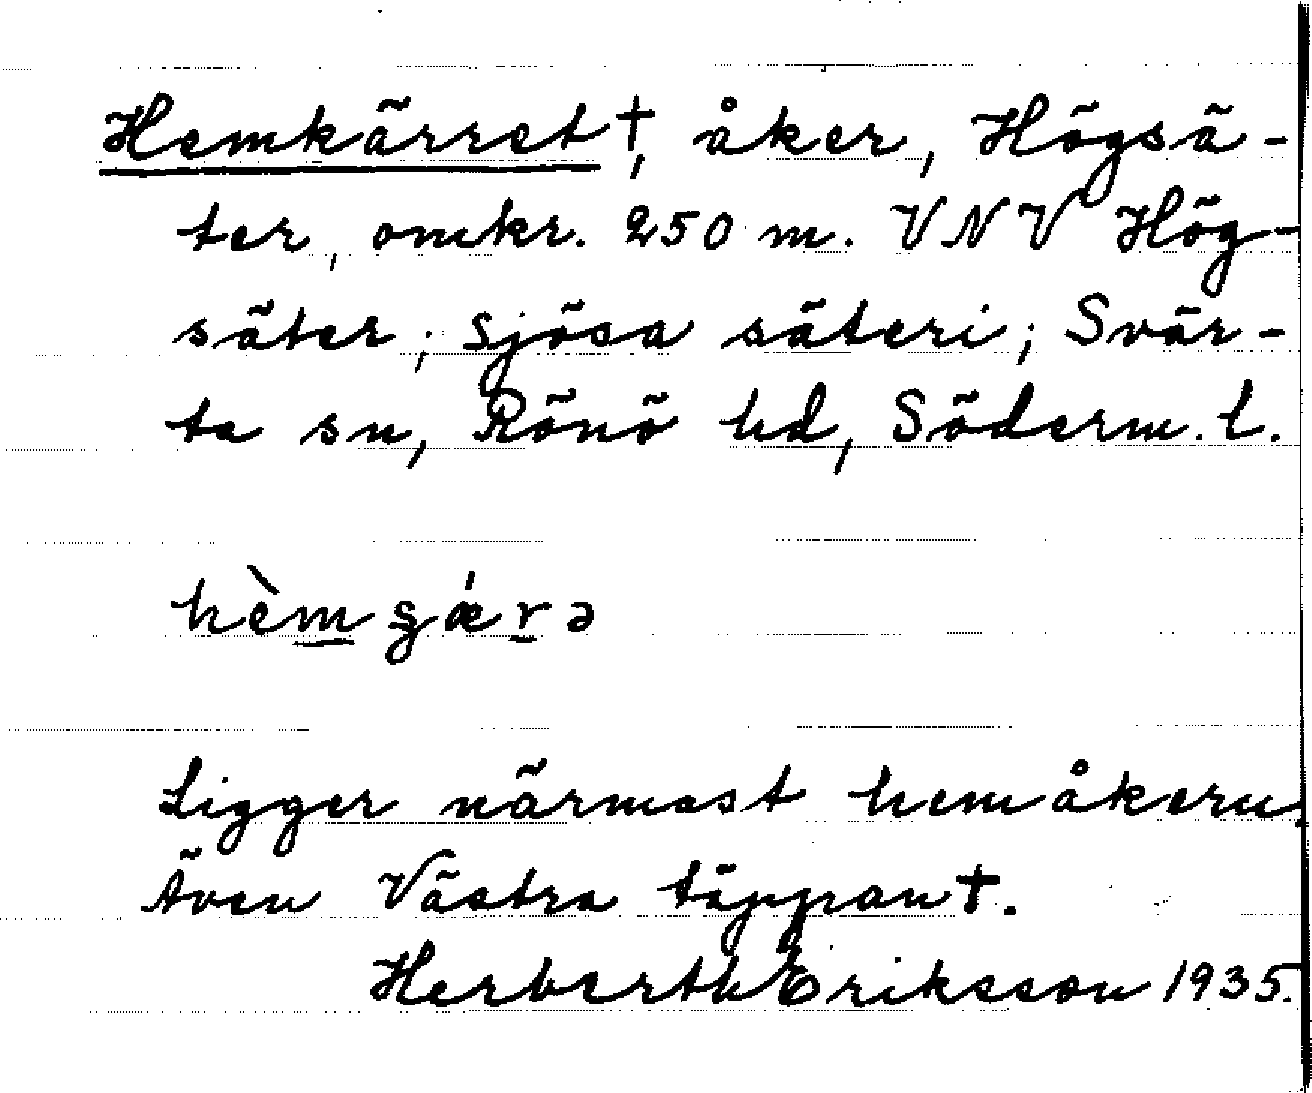 Hemkärret †, åker, Högsä-
ter, omkr. 250 m. VNV Hög-
säter; Sjösa säteri; Svär-
ta sn, Rönö hd, Söderm. l.
hèmʂǽrə
Ligger närmast hemåkern.
Även Västra täppan †.
Herberth Eriksson 1935.